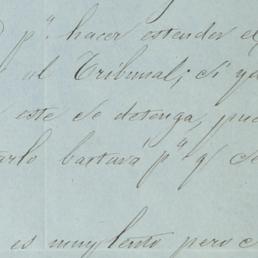 pª. hacer estender e
al Tribunal; si ya
este se detenga, pue
arlo bastava pª. q/ se
es muy lento pero c